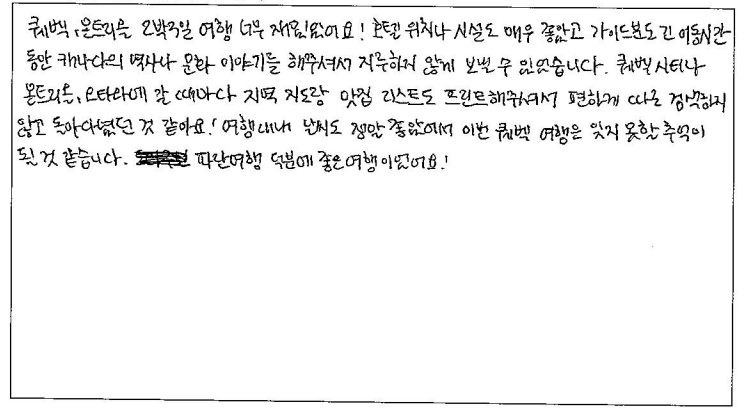 퀘벡, 몬트리올 2박3일 여행 너무 재밌었어요! 호텔 위치나 시설도 매우 좋았고 가이드분도 긴 이동시간
동안 캐나다의 역사나 문화 이야기들 해주셔서 지루하지 않게 보낼 수 있었습니다. 퀘벡시티나
몬트리올, 오타와에 갈 때마다 지역 지도랑 맛집 리스트도 프린트해주셔서 편하게 따로 검색하지
않고 돌아다녔던 것 같아요! 여행내내 날씨도 정말 좋았어서 이번 퀘벡 여행은 잊지 못할 추억이
될 것 같습니다. 파란여행 덕분에 좋은 여행이었어요!